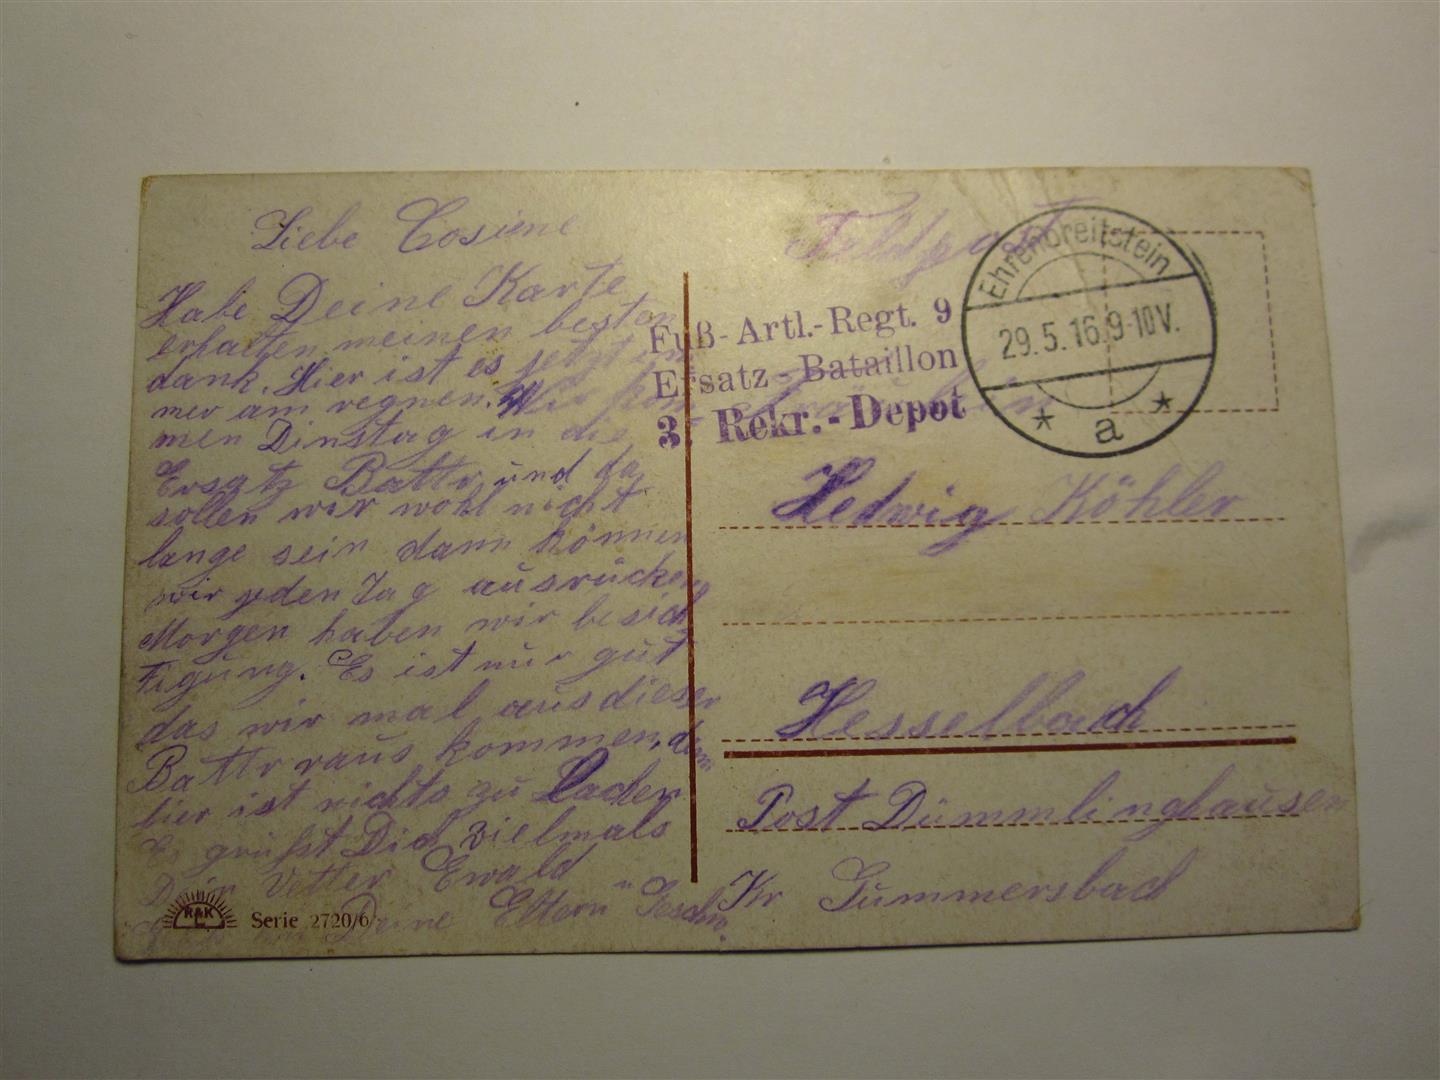 Liebe Cosiene
Habe Deine Karte
erhalten meinen besten
dank. Hier ist es jetzt im
mer am regnen. Wir kom
men Dinstag in die
Ersatz Battr und da
sollen wir wohl nicht
lange sein dann können
wir jeden Tag ausrücken
Morgen haben wir besich
tigung. Es ist nur gut
das wir mal aus dieser
Battr raus kommen, denn
hier ist nichts zu Lachen
Es grüßt Dich vielmals
Dein Vetter Ewald
Deine Eltern u Geschw.
R&K
L
Serie 2720/6
Feldpost
Ehrenbreitstein
29.5.16.9-10V.
* a *
Fuß-Artl.-Regt. 9
Ersatz-Bataillon
3. Rekr.-Depot
Fräulein
Hedwig Köhler
Hesselbach
Post Dümmlinghausen
Kr Gummersbach